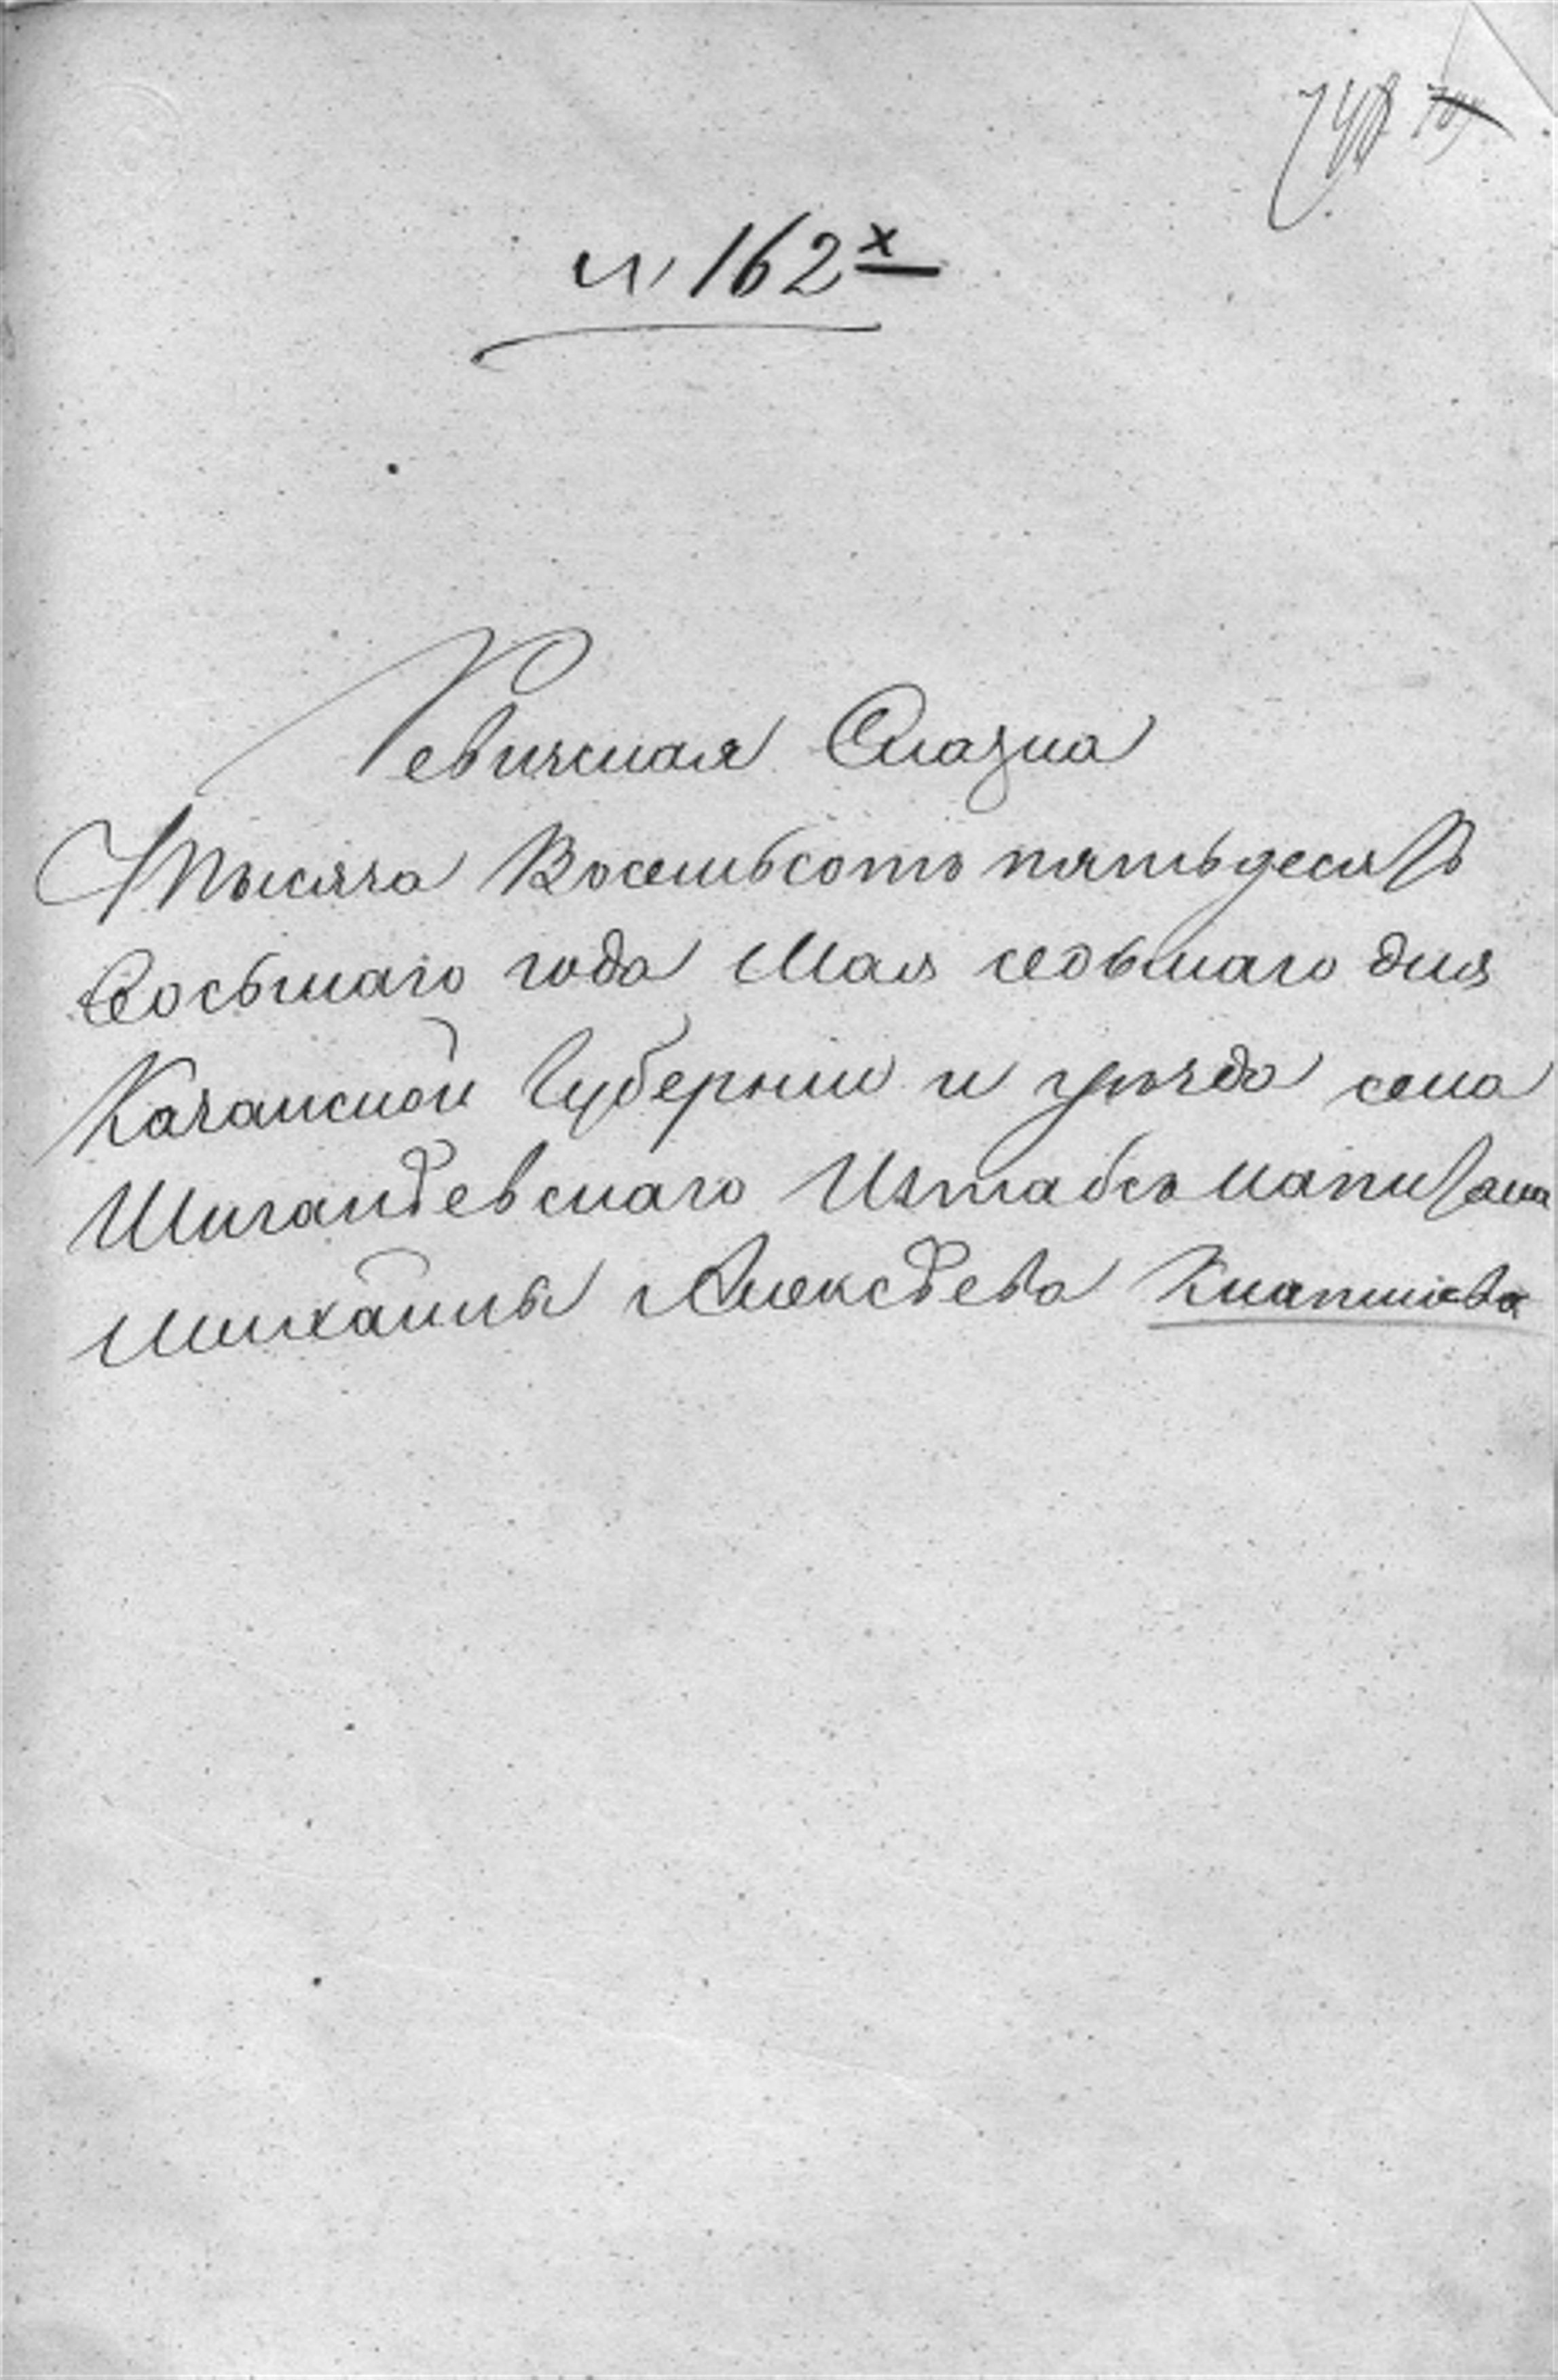 и 162х
Ревизская Сказка
Тысяча Восемьсотъ пятьдесятъ
восьмаго года Мая седьмаго дня
Казанской Губернии и уѣзда села
Шигалѣевскаго Иштабсъ капитана
Михаилы Алексѣева